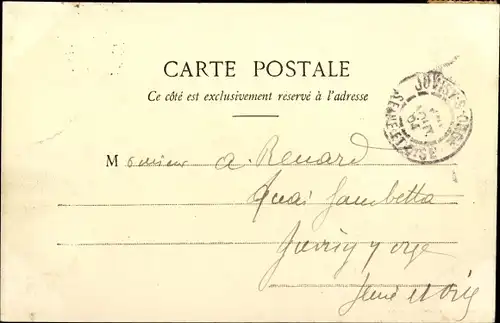 CARTE POSTALE
Ce côté est exclusivement réservé à l'adresse
JUVISY-S-ORGE
SEINE-ET-OISE
Monsieur A. Renard
Quai Gambetta
Juvisy s/ orge
Seine et Oise